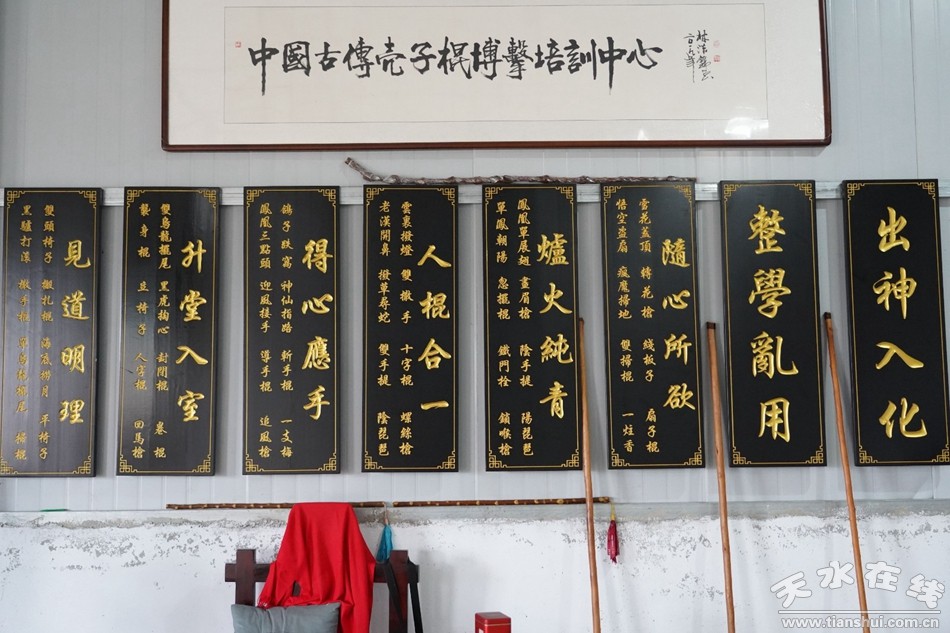 中國古傳壳子棍搏擊培訓中心
出神入化
整學亂用
隨心所欲
雪花蓋頂 轉花槍 綫板子 扇子棍
悟空盗扇 瘋魔掃地 雙掃棍 一炷香
爐火純青
鳳凰單展翅 畫眉槍 陰手提 陽琵琶
單鳳朝陽 忽擺棍 鐵門栓 鎖喉槍
人棍合一
雲裏撥燈 雙撒手 十字棍 螺絲槍
老漢開鼻 撥草尋蛇 雙手提 陰琵琶
得心應手
鷂子跌窩 神仙指路 斬手棍 一支梅
鳳凰三點頭 迎風接手 導手棍 追風槍
升堂入室
雙烏龍擺尾 黑虎掏心 封閉棍 卷棍
襲身棍 豆椅子 人字棍 回馬槍
見道明理
雙頭椅子 搬扎棍 海底撈月 平椅子
黑驢打滾 撒手棍 單烏龍擺尾 掃棍
天水在线
www.tianshui.com.cn